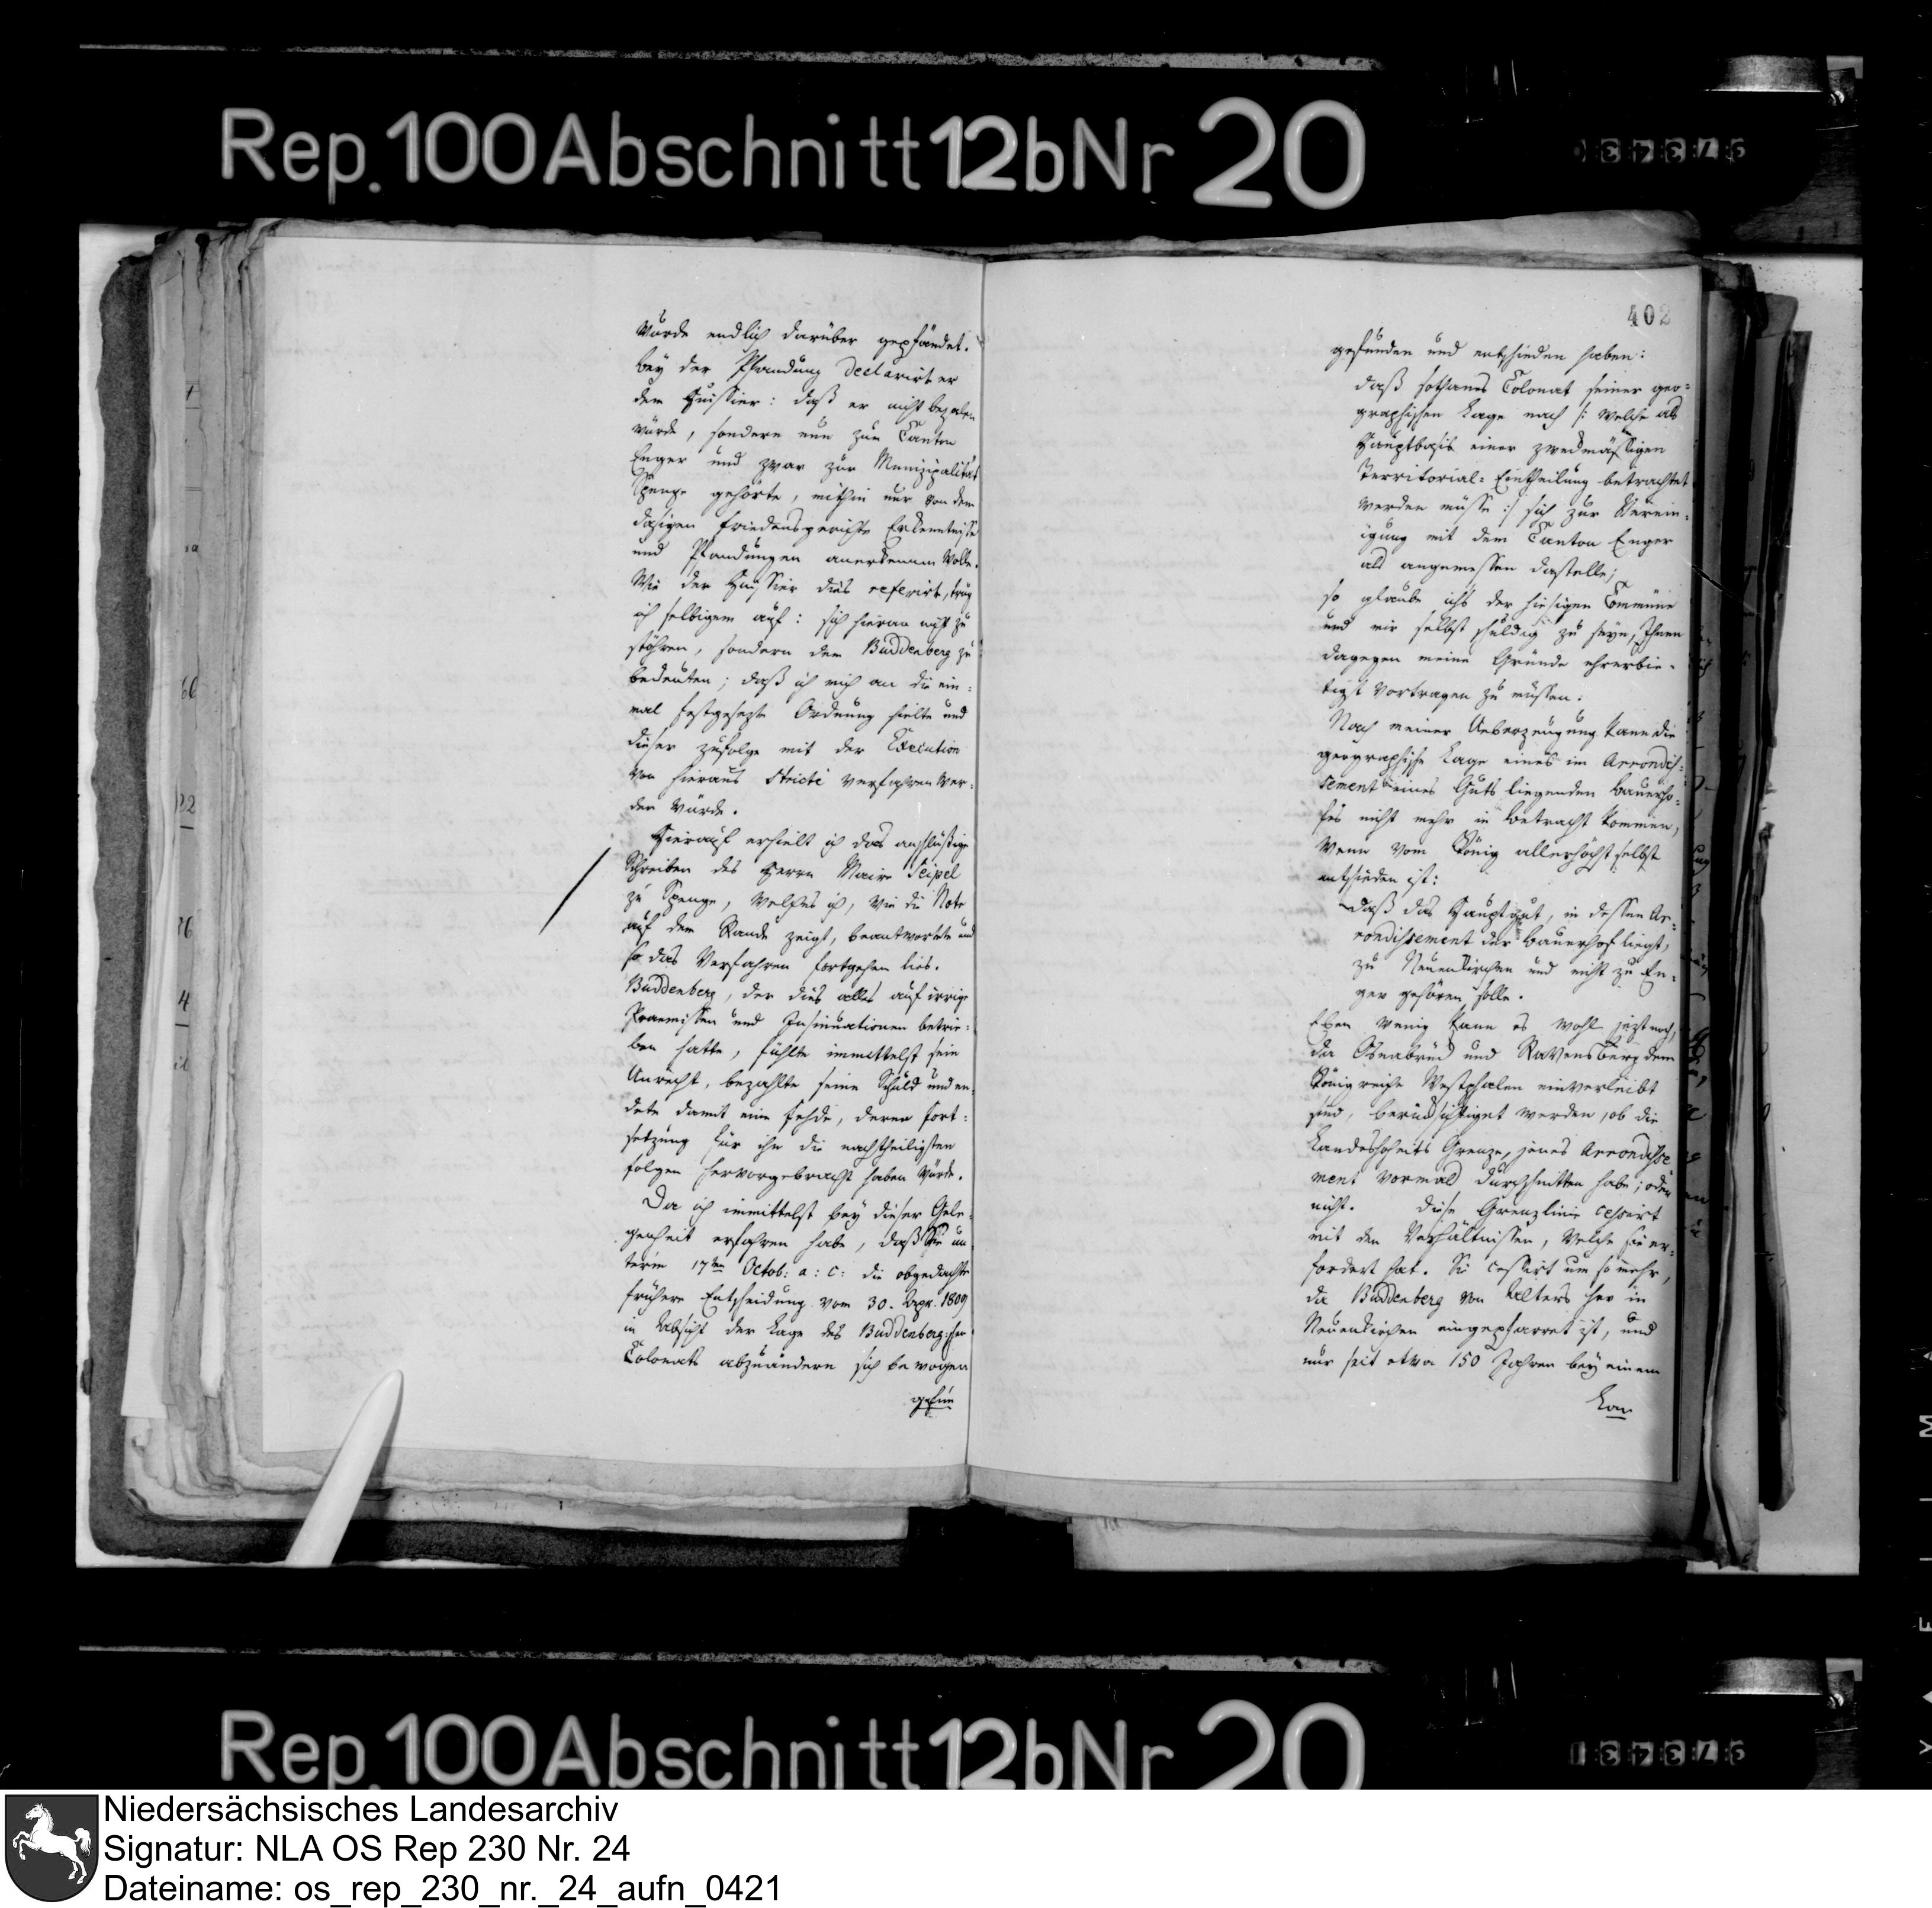 Rep. 100 Abschnitt 12b Nr 20
wurde endlich darüber gepfändet.
bey der Pfandung declarirt er
dem Huissier: daß er nicht bezalen
würde, sondern nun zum Canton
Enger und zwar zur Munizipalitaet
Spenge gehörte, mithin nur von dem
dasigen Friedensgerichte Erkenntnisse
und Pfandungen anerkennen wolle.
Wie der Huissier dies referirt, trug
ich selbigem auf: sich hieran nicht zu
stöhren, sondern dem Buddenberg zu
bedeuten; daß ich mich an die ein-
mal festgesezte Ordnung hielte und
dieser zufolge mit der Execution
von hieraus stricte verfahren wer-
den würde.
Hierauf erhielt ich das anschlüßige
Schreiben des Herrn Maire Seipel
zu Spenge, welches ich, wie die Note
auf dem Rande zeigt, beantwortete und
so das Verfahren fortgehen lies.
Buddenberg, der dies alles auf irrige
Praemissen und Insinuationen betrie-
ben hatte, fühlte immittelst sein
Unrecht, bezahlte seine Schuld und en-
dete damit eine Fehde, deren Fort-
setzung für ihn die nachtheiligsten
folgen hervorgebracht haben würde.
Da ich immittelst bey dieser Gele-
genheit erfahren habe, daß Sie un-
term 17ten Octob: a: c: die obgedachte
frühere Entscheidung vom 30. Apr. 1809
in Absicht der Lage des Buddenberg:schen
Colonats abzuändern sich bewogen
gefun
402
gefunden und entschieden haben:
daß sothanes Colonat seiner geo-
graphischen Lage nach /: welche als
Hauptbasis einer zweckmäßigen
Territorial-Eintheilung betrachtet
werden müsse :/ sich zur Verein-
igung mit dem Canton Enger
als angemessen dastelle;
so glaube ichs der hiesigen Commüne
und mir selbst schuldig zu seyn, Ihnen
dagegen meine Gründe ehrerbie-
tigst vortragen zu müssen:
Nach meiner Ueberzeugung kann die
geographische Lage eines im Arrondis-
sement eines Guts liegenden Bauerho-
fes nicht mehr in betracht kommen,
wenn vom König allerhöchst selbst
entschieden ist:
daß das Hauptgut, in dessen Ar-
rondissement der Bauerhof liegt,
zu Neuenkirchen und nicht zu En-
ger gehören solle.
Eben wenig kann es wohl jezt noch,
da Osnabrück und Ravensberg dem
Königreiche Westphalen einverleibt
sind, berücksichtiget werden, ob die
Landeshoheits Grenze, jenes Arrondisse-
ment vormals durchschnitten habe; oder
nicht. Diese Grenzlinie cessirt
mit den Verhältnissen, welche sie er-
fordert hat. Sie cessirt um so mehr,
da Buddenberg von Alters her in
Neuenkirchen eingepfarret ist, und
nur seit etwa 150 Jahren bey einem
Rep. 100 Abschnitt 12b Nr 20
Niedersächsisches Landesarchiv
Signatur: NLA OS Rep 230 Nr. 24
Dateiname: os_rep_230_nr._24_aufn_0421